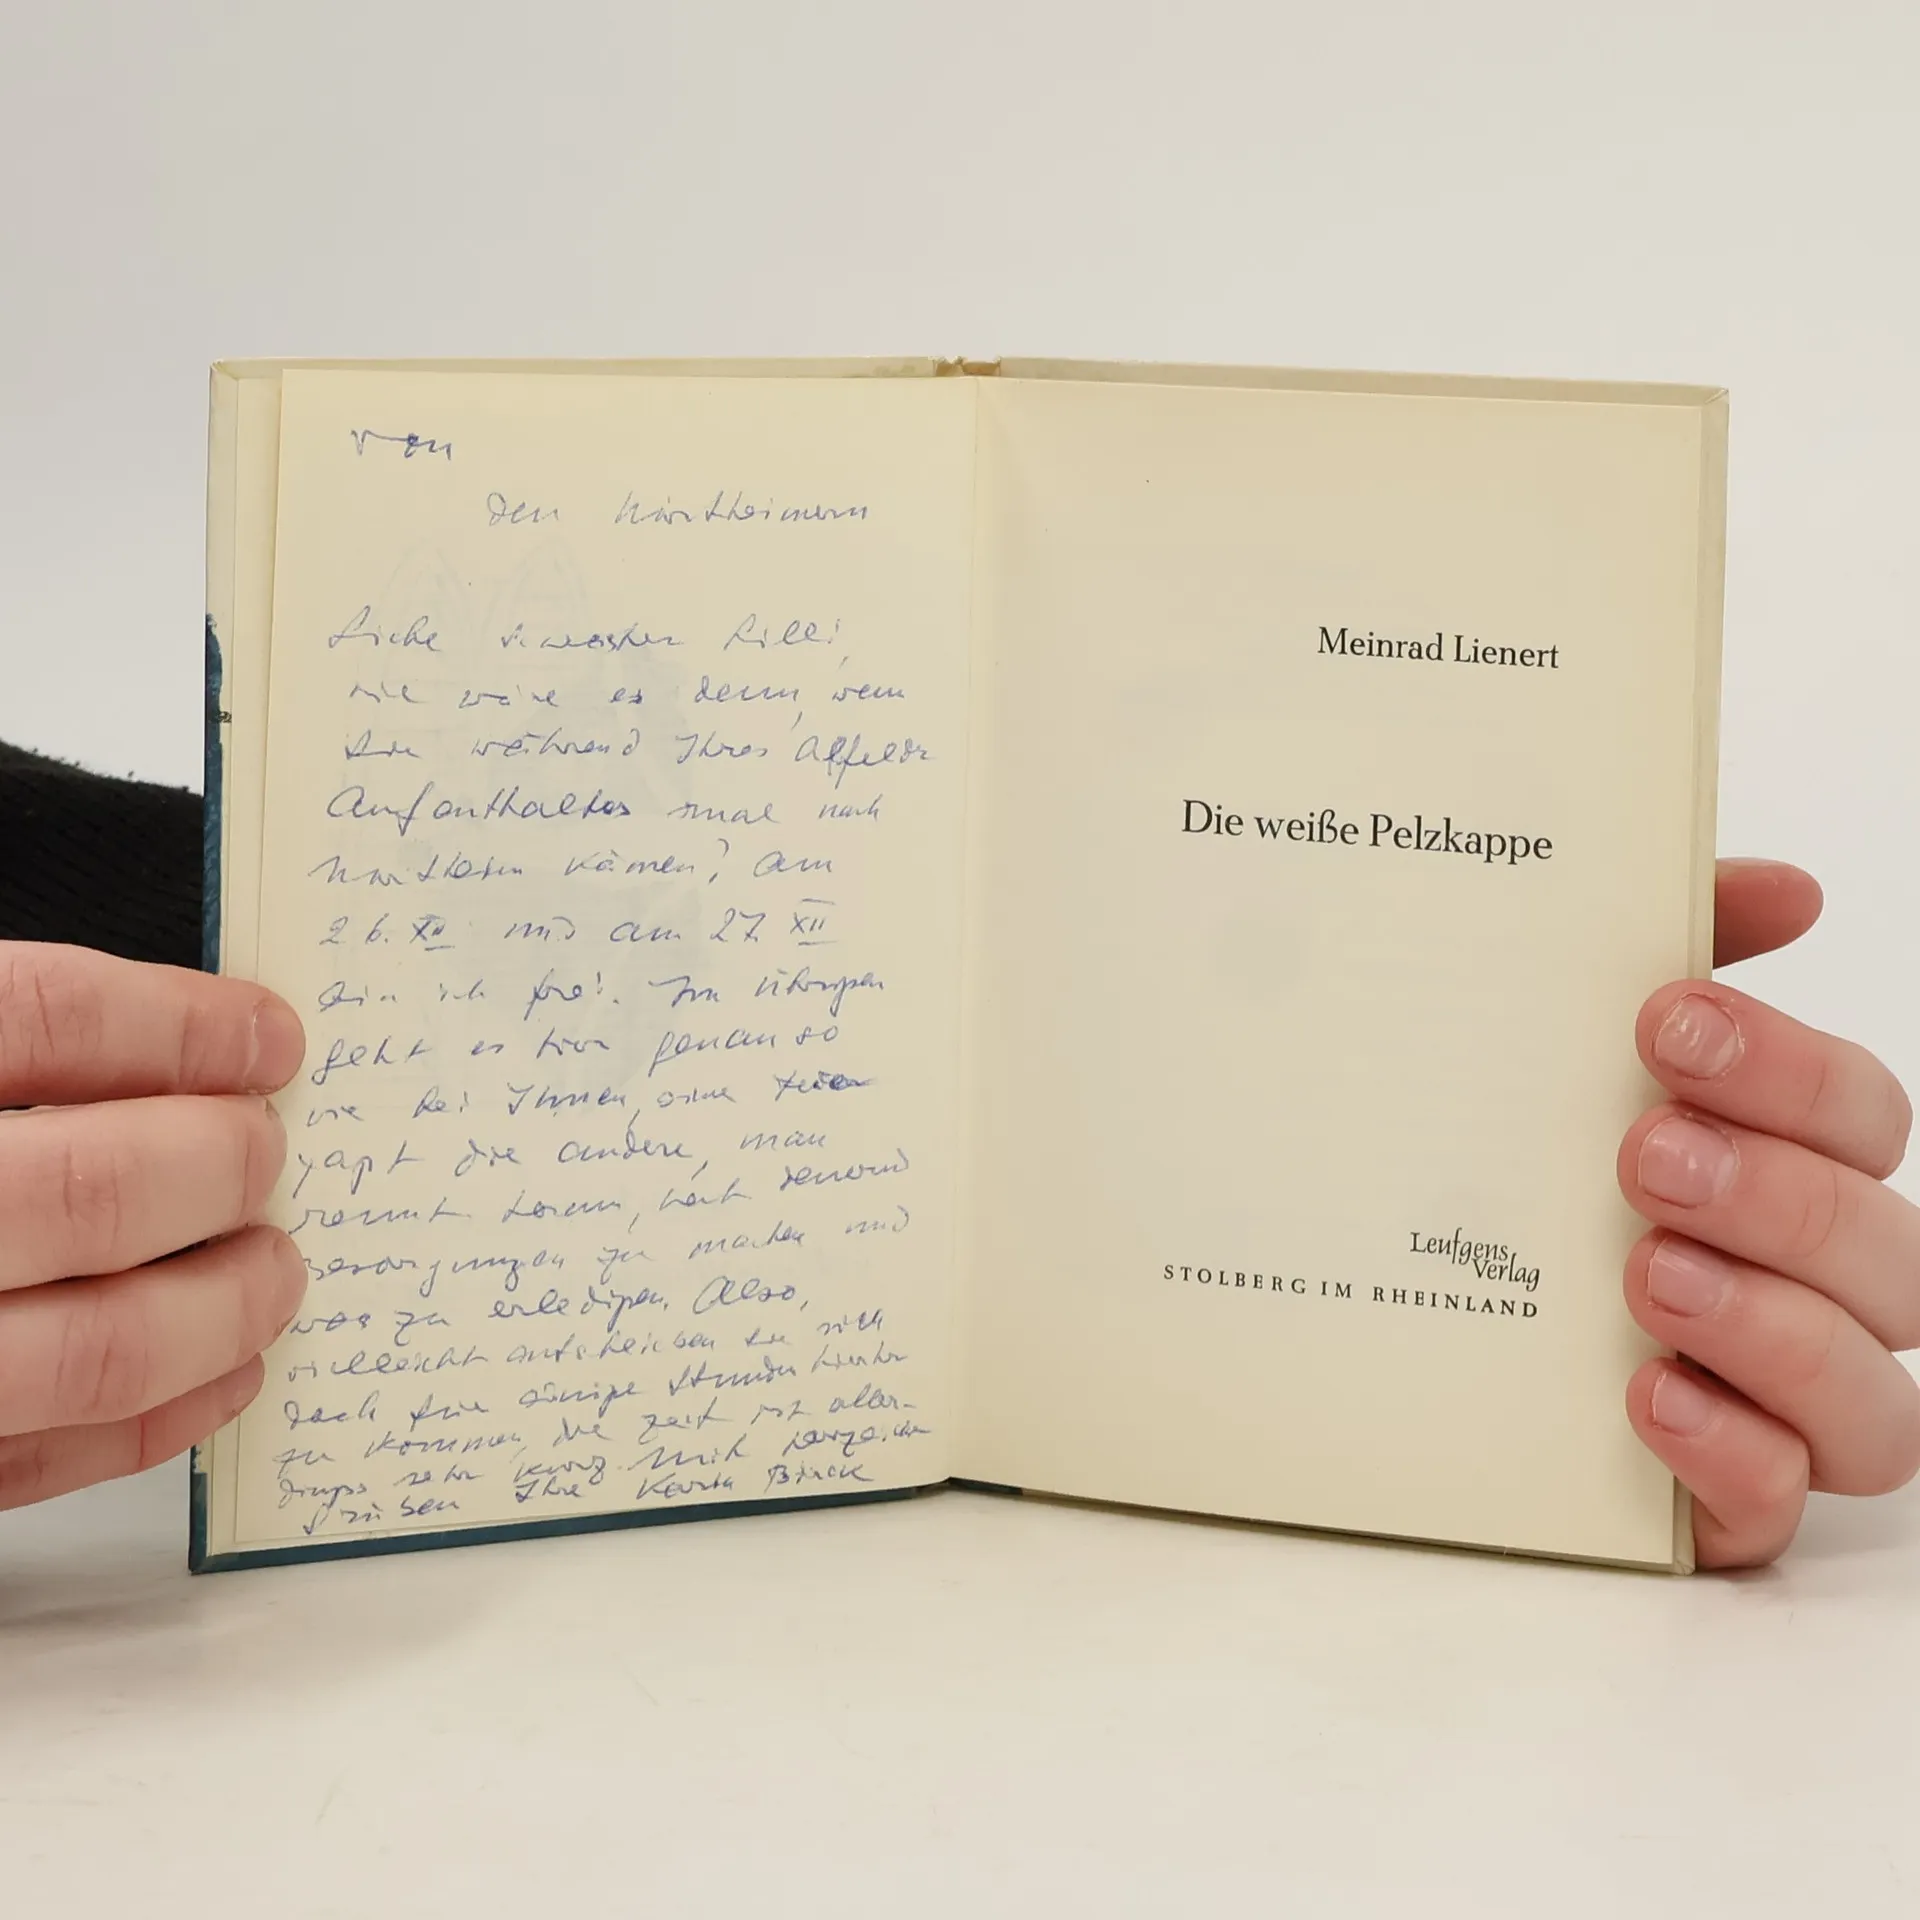 von
den
Liebe Schwester Lilli,
wie wäre es denn, wenn
Sie während Ihres Alfelder
Aufenthaltes mal nach
kämen? Am
26. XII und am 27. XII
bin ich frei. Im übrigen
geht es hier genau so
wie bei Ihnen, eine Feier
jagt die andere, man
rennt herum, hat dauernd
Besorgungen zu machen und
was zu erledigen. Also,
vielleicht entscheiden Sie sich
doch für einige Stunden hierher
zu kommen, die Zeit ist aller-
dings sehr kurz. Mit herzlichen
Grüßen Ihre Karin
Meinrad Lienert
Die weiße Pelzkappe
Leufgens
Verlag
STOLBERG IM RHEINLAND